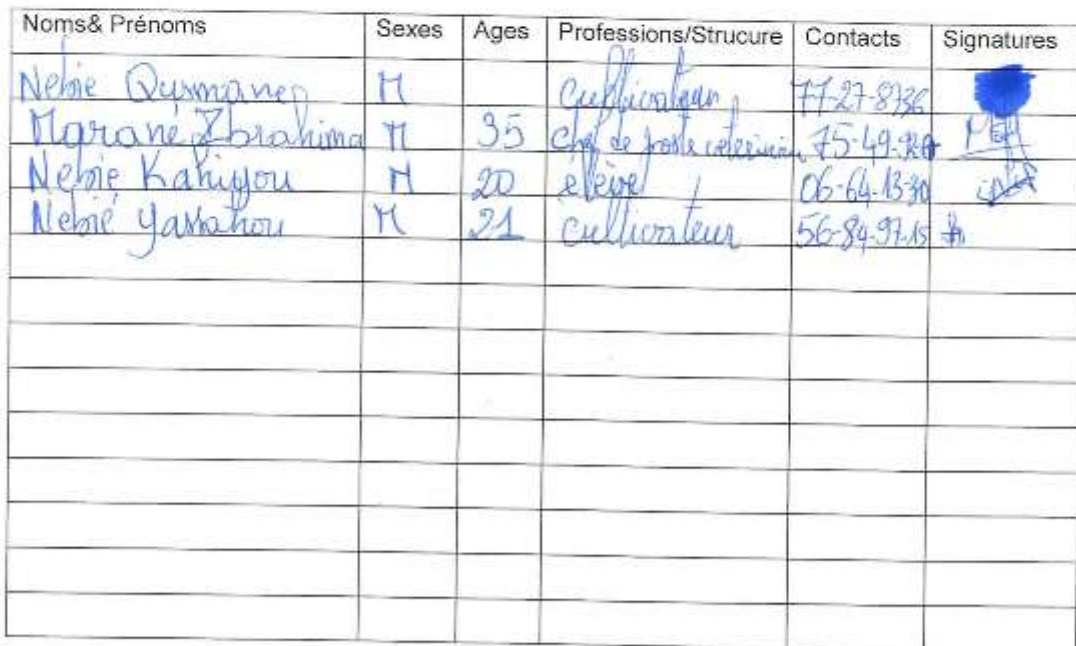 Noms& Prénoms Sexes Ages Professions/Strucure Contacts Signatures
Nebie Ousmane M Cultivateur 77-27-8736
Marané Ibrahima M 35 Chef de poste vétérinaire 75-49-
Nebie M 20 elève 06-64-13-30
Nebié Yassahou M 21 Cultivateur 56-84-97-15